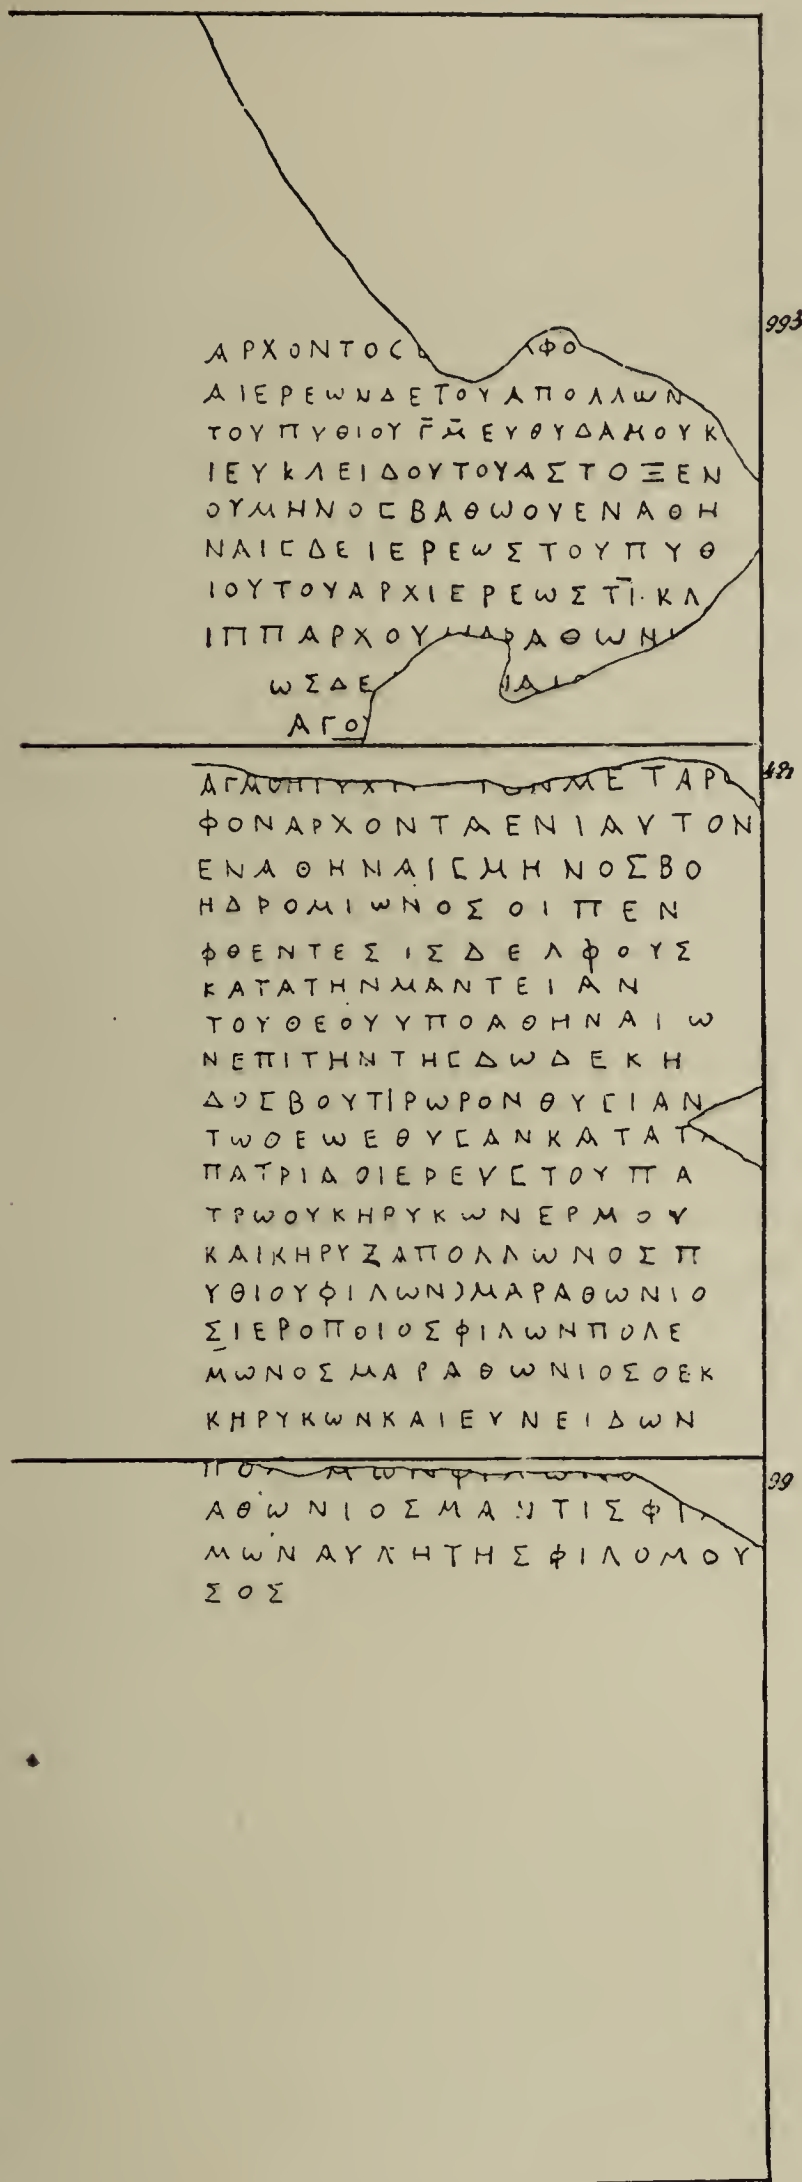 ΑΡΧΟΝΤΟϹ ΦΟ
993
ΑΙΕΡΕωΝΔΕΤΟΥΑΠΟΛΛωΝ
ΤΟΥΠΥΘΙΟΥΓ̄Μ̄ΕΥΘΥΔΑΜΟΥΚ
ΙΕΥΚΛΕΙΔΟΥΤΟΥΑΣΤΟΞΕΝ
ΟΥΜΗΝΟϹΒΑΘωΟΥΕΝΑΘΗ
ΝΑΙϹΔΕΙΕΡΕωΣΤΟΥΠΥΘ
ΙΟΥΤΟΥΑΡΧΙΕΡΕωΣΤῙ·ΚΛ
ΙΠΠΑΡΧΟΥΜΑΡΑΘωΝΙ
ωΣΔΕ ΙΑΙ
ΑΓΟΥ
ΜΕΤΑΡ
ΦΟΝΑΡΧΟΝΤΑΕΝΙΑΥΤΟΝ
ΕΝΑΘΗΝΑΙϹΜΗΝΟΣΒΟ
ΗΔΡΟΜΙωΝΟΣΟΙΠΕΝ
ΦΘΕΝΤΕΣΙΣΔΕΛΦΟΥΣ
ΚΑΤΑΤΗΝΜΑΝΤΕΙΑΝ
ΤΟΥΘΕΟΥΥΠΟΑΘΗΝΑΙω
ΝΕΠΙΤΗΝΤΗϹΔωΔΕΚΗ
ΔΟΣΒΟΥΤΙΡωΡΟΝΘΥϹΙΑΝ
ΤωΘΕωΕΘΥϹΑΝΚΑΤΑΤΑ
ΠΑΤΡΙΑΟΙΕΡΕΥϹΤΟΥΠΑ
ΤΡωΟΥΚΗΡΥΚωΝΕΡΜΟΥ
ΚΑΙΚΗΡΥΖΑΠΟΛΛωΝΟΣΠ
ΥΘΙΟΥΦΙΛωΝ)ΜΑΡΑΘωΝΙΟ
ΣΙΕΡΟΠΟΙΟΣΦΙΛωΝΠΟΛΕ
ΜωΝΟΣΜΑΡΑΘωΝΙΟΣΟΕΚ
ΚΗΡΥΚωΝΚΑΙΕΥΝΕΙΔωΝ
99
ΑΘωΝΙΟΣΜΑΝΤΙΣΦΙΛ
ΜωΝΑΥΛΗΤΗΣΦΙΛΟΜΟΥ
ΣΟΣ